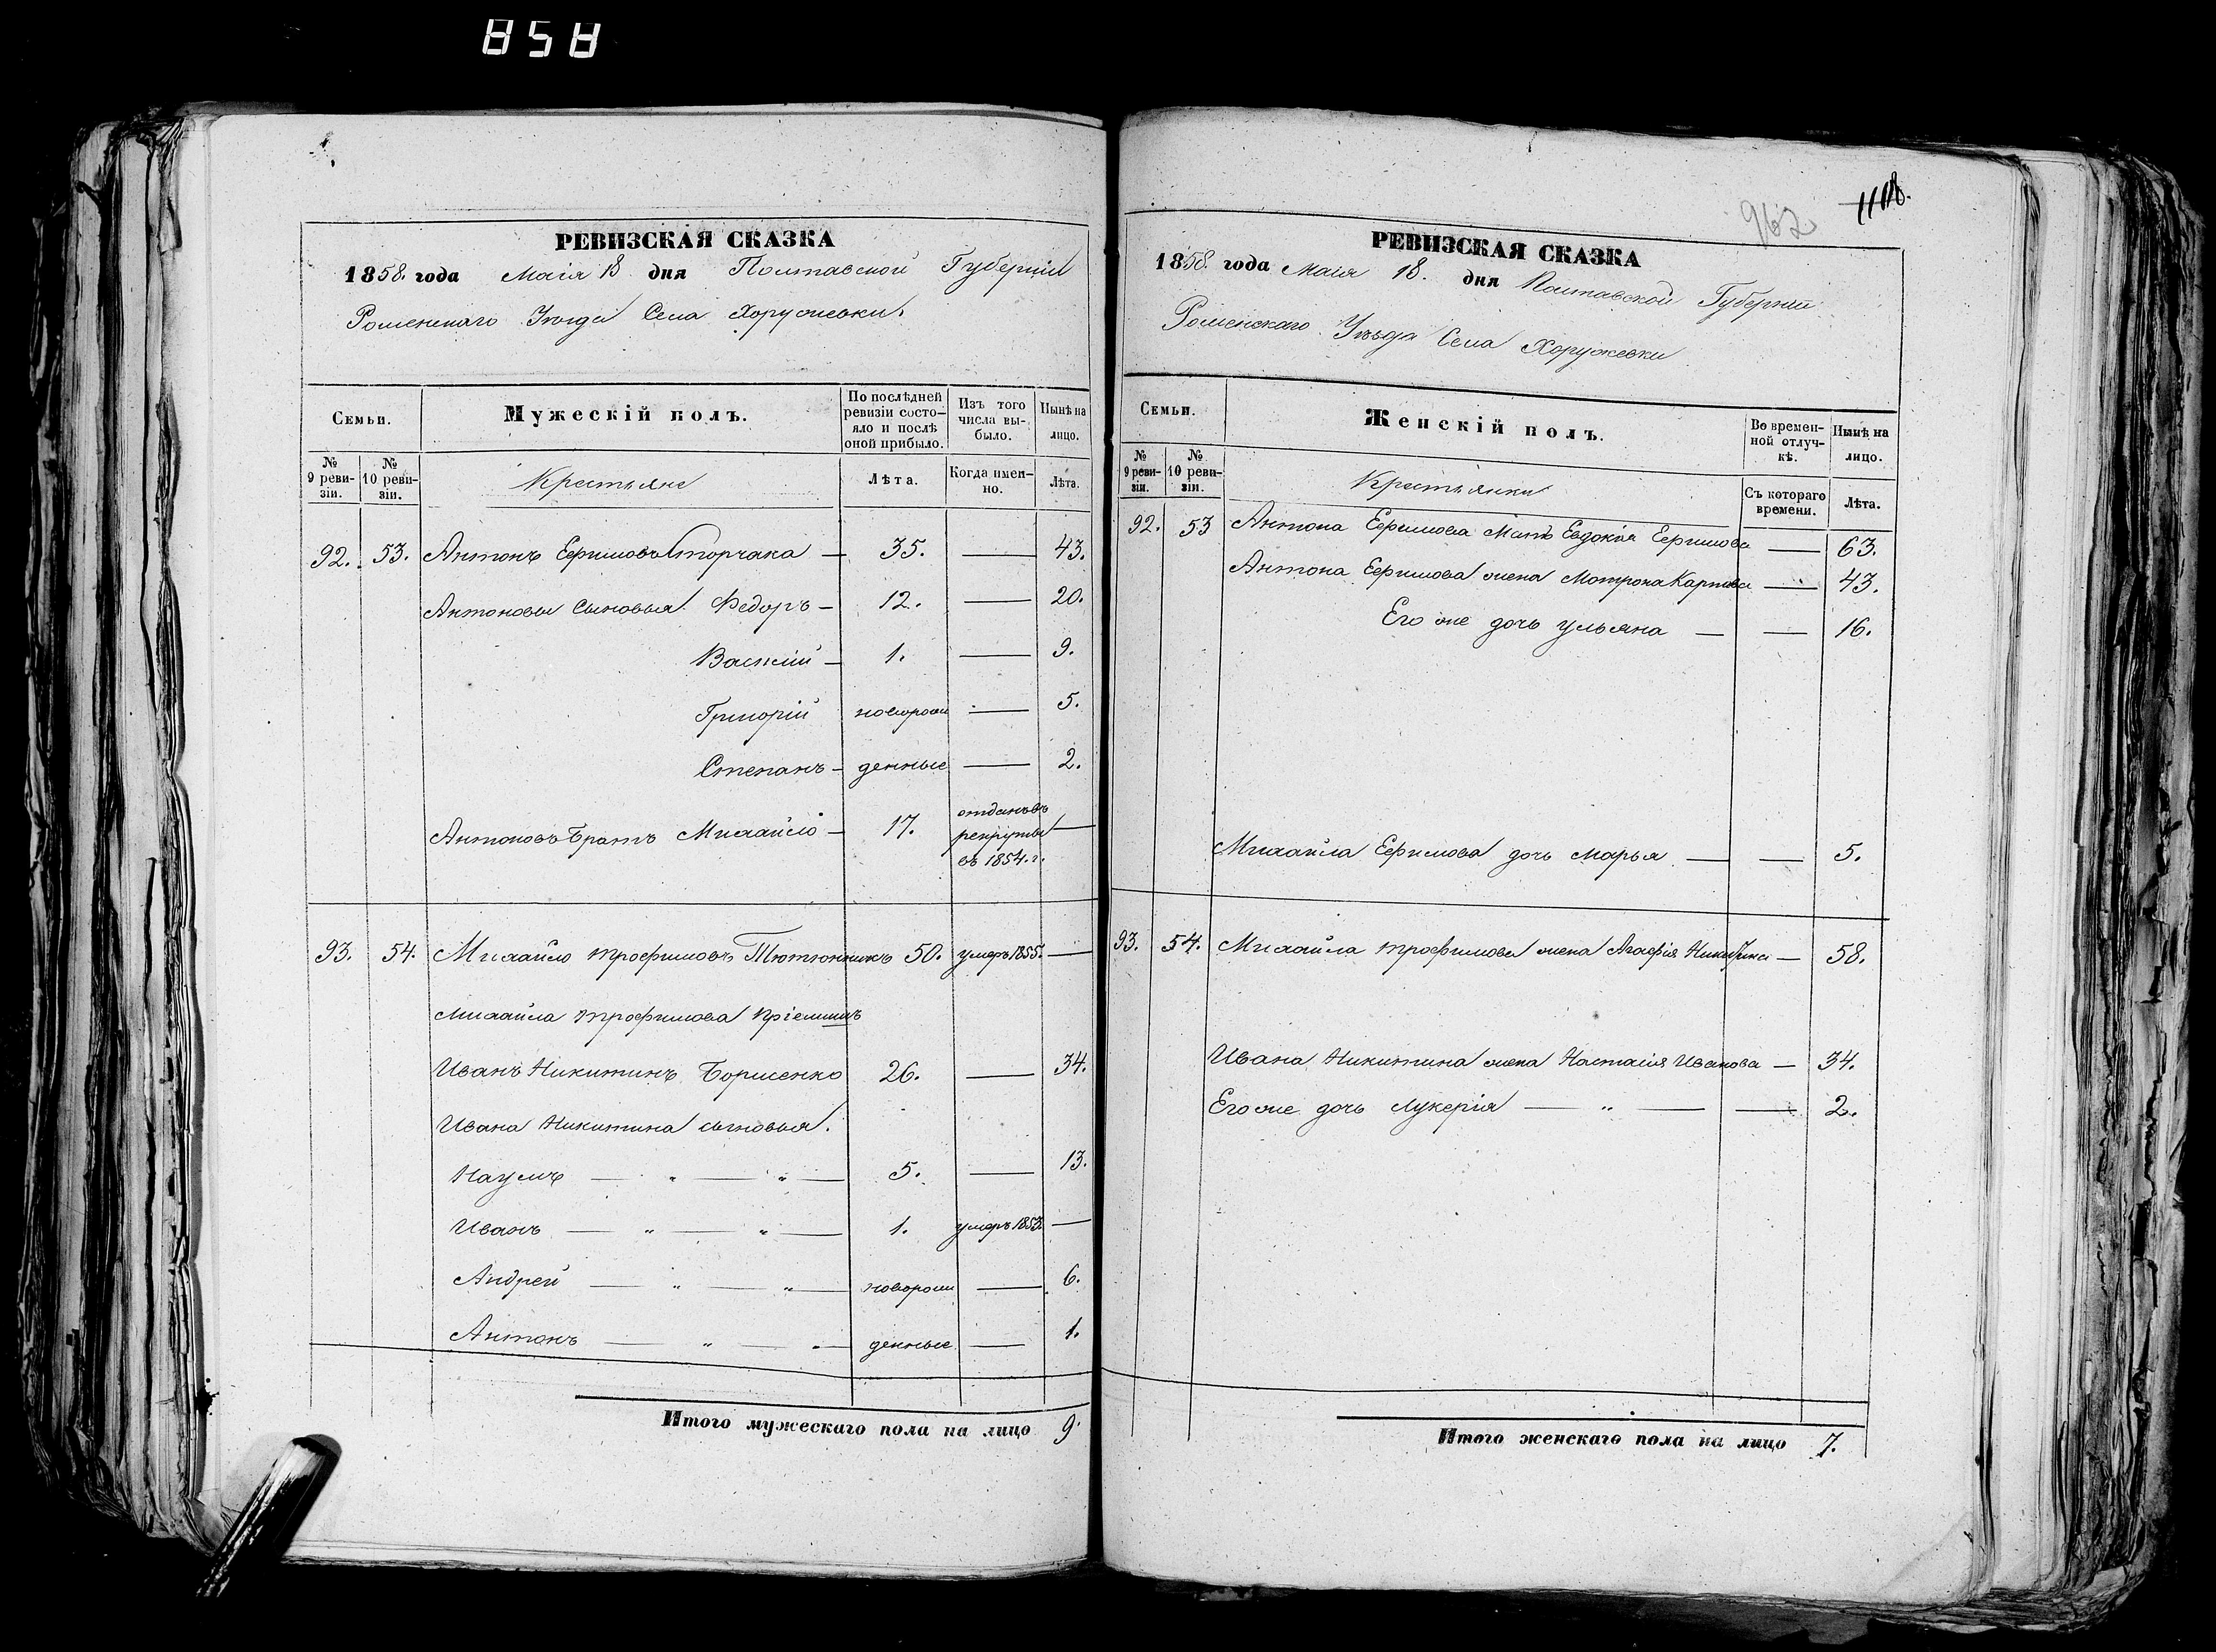 858
РЕВИЗСКАЯ СКАЗКА
1858. года Маія 18 дня Полтавской Губерніи
Роменскаго Уѣзда Села Хоружевки.
Семьи.
Мужескій полъ.
По послѣдней ревизіи состо-яло и послѣ оной прибыло.
Изъ того числа вы-было.
Нынѣ на лицо.
№ 9 реви-зіи.
№ 10 реви-зіи.
Крестьяне
Лѣта.
Когда имен-но.
Лѣта.
92. 53. Антонъ Ефимовъ Сторчака — 35. — 43.
Антоновы сыновья. Федоръ — 12. — 20.
Василій — 1. — 9.
Григорій новорож — 5.
Степанъ — денные — 2.
Антоновъ братъ Михайло — 17. отданъ въ рекруты въ 1854. г. —
93. 54. Михайло Трофимовъ Тютюнникъ 50. умеръ 1855. —
Михайла Трофимова пріемышъ
Иванъ Никитинъ Борисенко 26. — 34.
Ивана Никитина сыновья.
Наумъ — " — " — 5. — 13.
Иванъ — " — " — 1. умеръ 1853. —
Андрей — " — " — новорож — 6.
Антонъ — " — " — денные — 1.
Итого мужескаго пола на лицо 9.
962 1118.
РЕВИЗСКАЯ СКАЗКА
1858. года Маія 18. дня Полтавской Губерніи
Роменскаго Уѣзда Села Хоружевки
Семьи.
Женскій полъ.
Во времен-ной отлуч-кѣ.
Нынѣ на лицо.
№ 9 реви-зіи.
№ 10 реви-зіи.
Крестьянки
Съ котораго времени.
Лѣта.
92. 53 Антона Ефимова мать Евдокія Ефимова — 63.
Антона Ефимова жена Мотрона Карпова — 43.
Его же дочь Ульяна — — 16.
Михайла Ефимова дочь Марья — — 5.
93. 54. Михайла Трофимова жена Агафія Никитина — 58.
Ивана Никитина жена Настасія Иванова — 34.
Его же дочь Лукерія — " — — 2.
Итого женскаго пола на лицо 7.